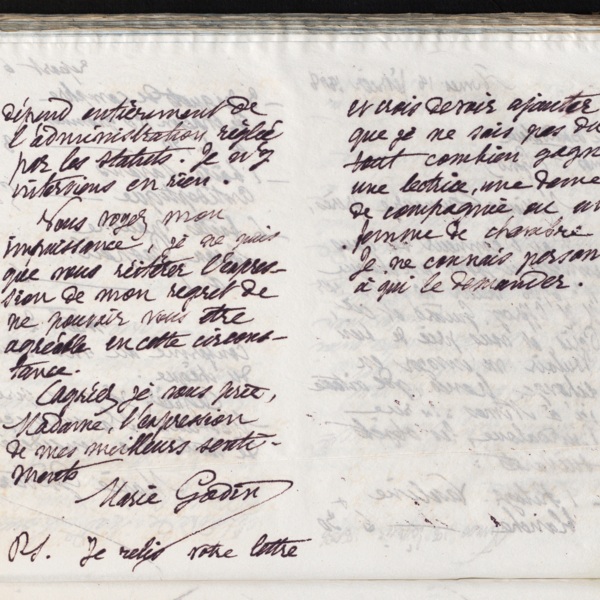 dépend entièrement de
l'administration réglée
par les statuts. Je n'y
intersions en rien.
Vous voyez mon
impuissance, je ne puis
que vous réitérer l'expres-
sion de mon regret de
ne pouvoir vous être
agréable en cette circons-
tance.
L'agréez je vous prie,
Madame, l'expression
de mes meilleurs senti-
ments
Marie Godin
P.S. Je relis votre lettre
et crois devoir ajouter
que je ne sais pas du
tout combien gagn
une lectrice, une dame
de compagnie ou un
femme de chambre
Je ne connais person
à qui le demander.